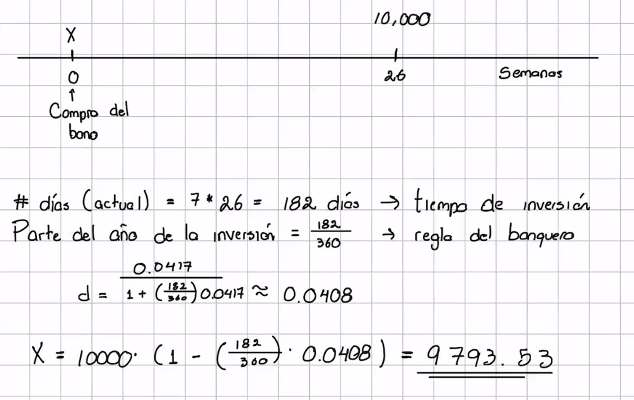 10,000
X
0 26 Semanas
↑
Compra del
bono
# días (actual) = 7 * 26 = 182 días → tiempo de inversión
Parte del año de la inversión = 182/360 → regla del banquero
d = 0.0417 / 1 + (182/360) 0.0417 ≈ 0.0408
X = 10000 · (1 - (182/360) · 0.0408) = 9793.53